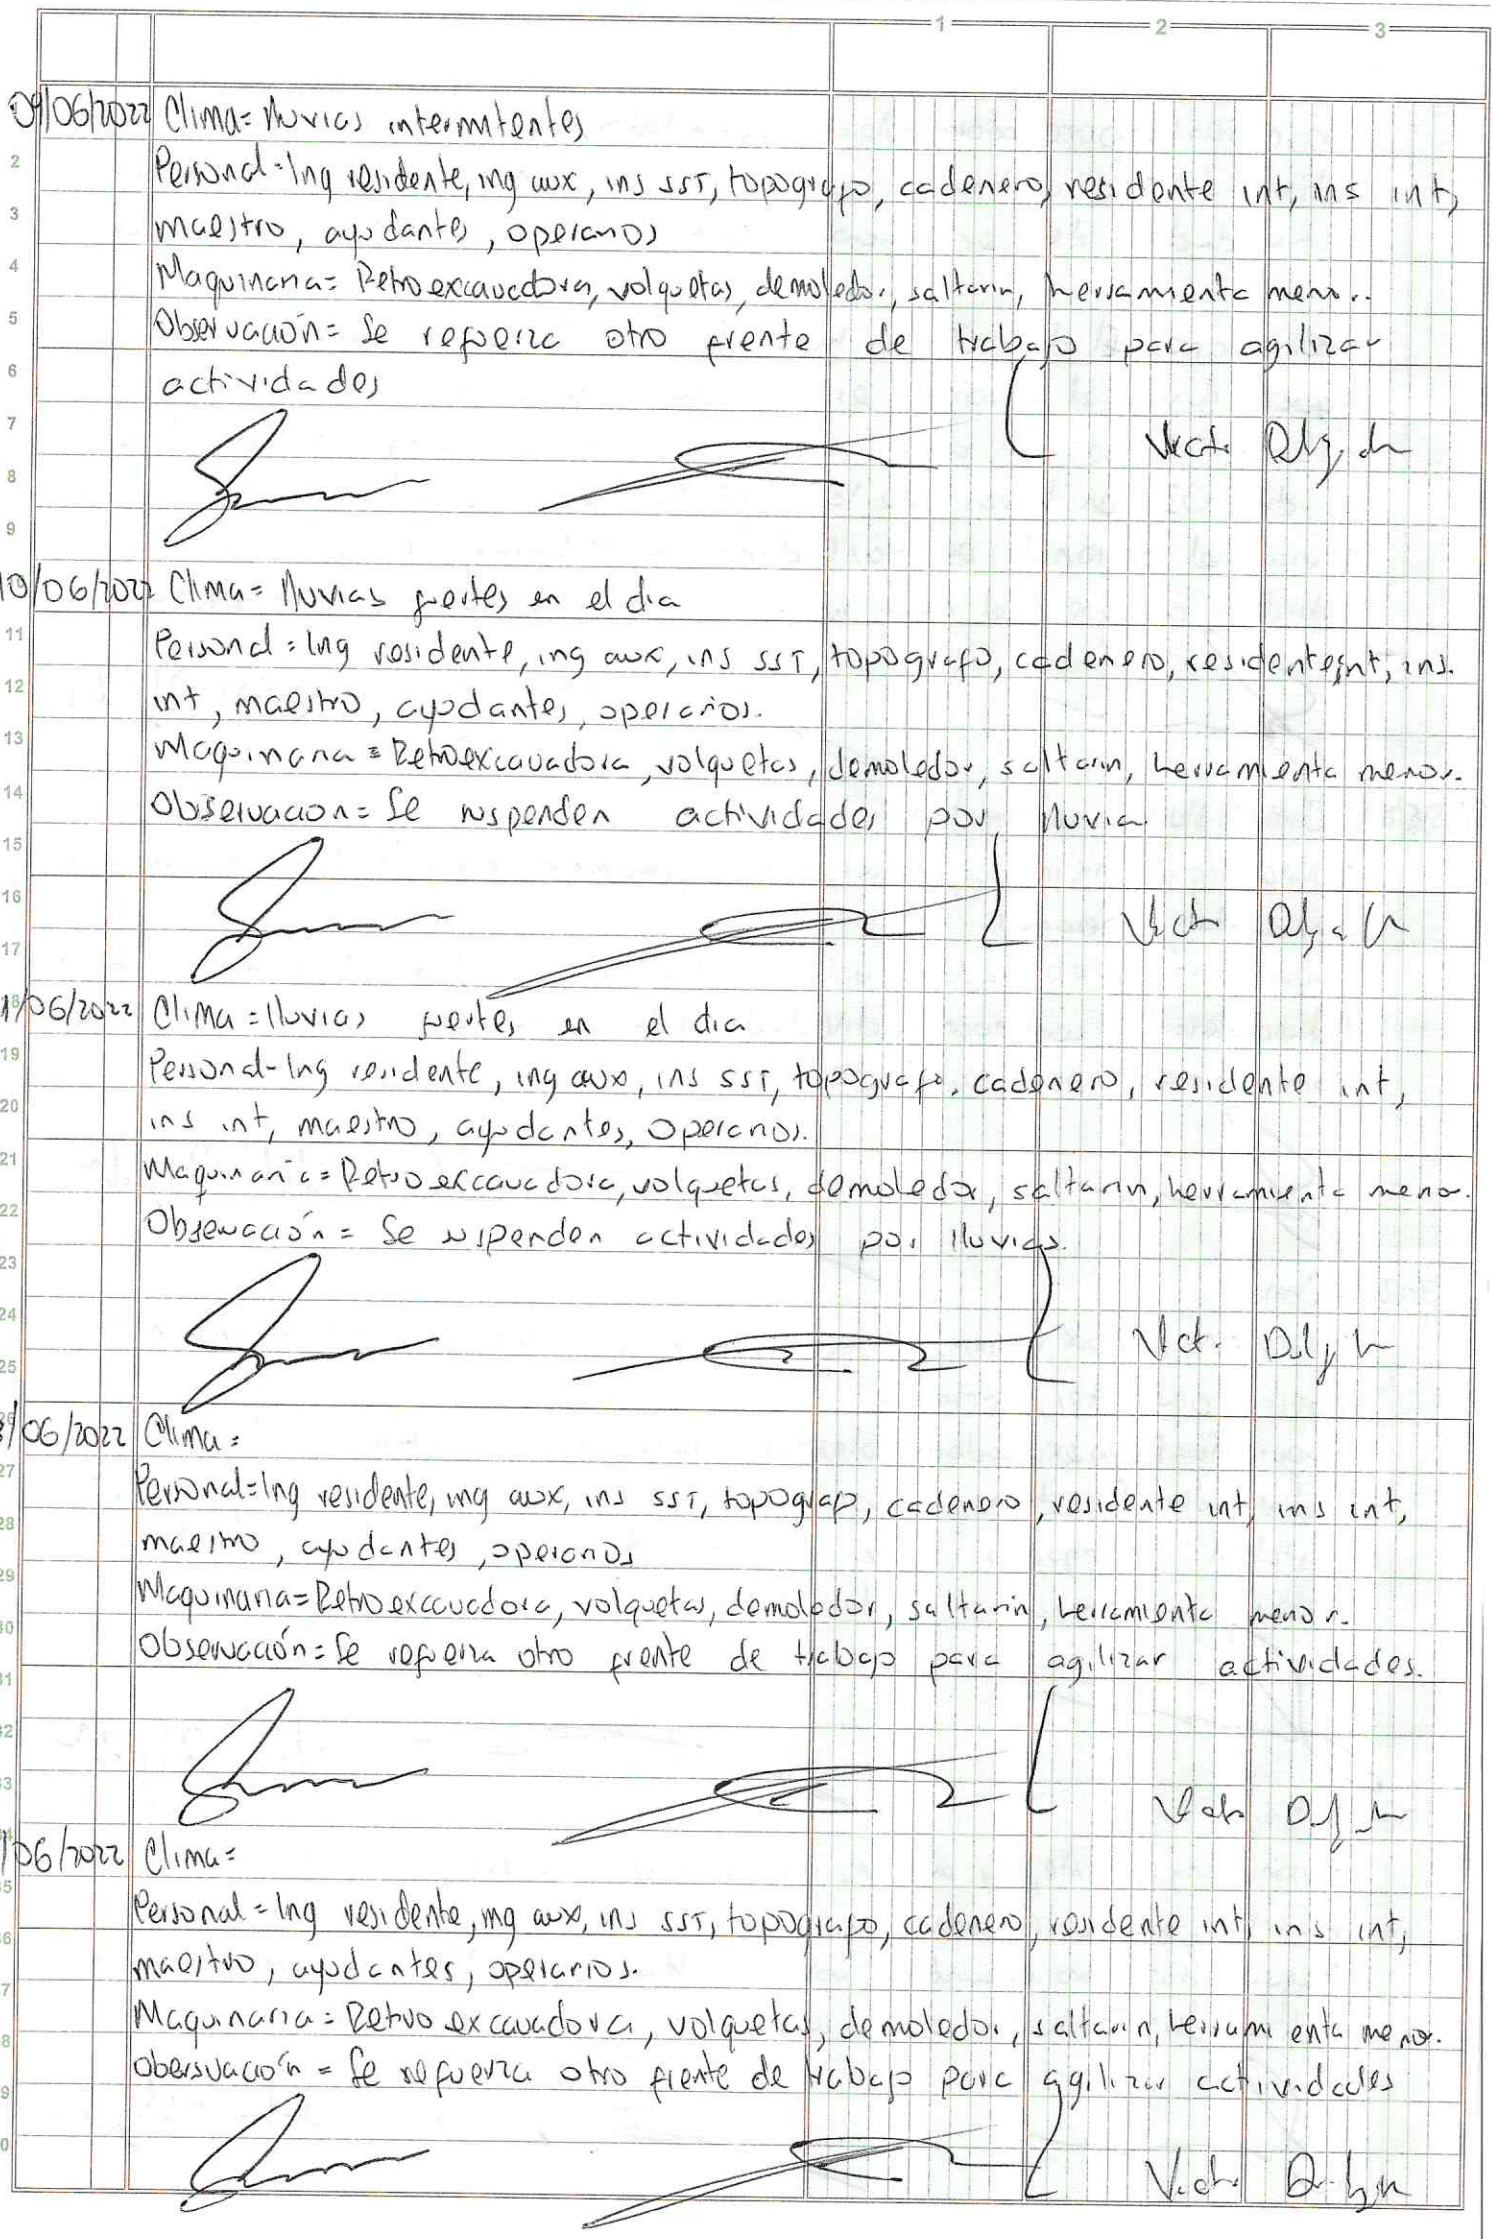 1 2 3
09/06/2022 Clima= lluvias intermitentes
2 Personal=Ing residente, ing aux, ins SST, topografo, cadenero, residente int, ins int,
3 maestro, ayudantes, operarios
4 Maquinaria= Retroexcavadora, volquetas, demoledor, saltarin, herramienta menor.
5 Observación= Se refuerza otro frente de trabajo para agilizar
6 actividades
7
8
9
10/06/2022 Clima= lluvias fuertes en el dia
11 Personal = Ing residente, ing aux, ins SST, topografo, cadenero, residente int, ins.
12 int, maestro, ayudantes, operarios.
13 Maquinaria = Retroexcavadora, volquetas, demoledor, saltarin, herramienta menor.
14 Observacion= Se suspenden actividades por lluvia
15
16
17
18 /06/2022 Clima = lluvias fuertes en el dia
19 Personal-Ing residente, ing aux, ins SST, topografo, cadenero, residente int,
20 ins int, maestro, ayudantes, operarios.
21 Maquinaria= Retroexcavadora, volquetas, demoledor, saltarin, herramienta menor.
22 Observación= Se suspenden actividades por lluvias.
23
24
25
/06/2022 Clima=
27 Personal=Ing residente, ing aux, ins SST, topografo, cadenero, residente int, ins int,
28 maestro, ayudantes, operarios
29 Maquinaria= Retroexcavadora, volquetas, demoledor, saltarin, herramienta menor.
30 Observación= Se refuerza otro frente de trabajo para agilizar actividades.
31
32
33
/06/2022 Clima=
35 Personal = Ing residente, ing aux, ins SST, topografo, cadenero, residente int, ins int,
36 maestro, ayudantes, operarios.
37 Maquinaria= Retroexcavadora, volquetas, demoledor, saltarin, herramienta menor.
38 Obersvación = Se refuerza otro frente de trabajo para agilizar actividades
39